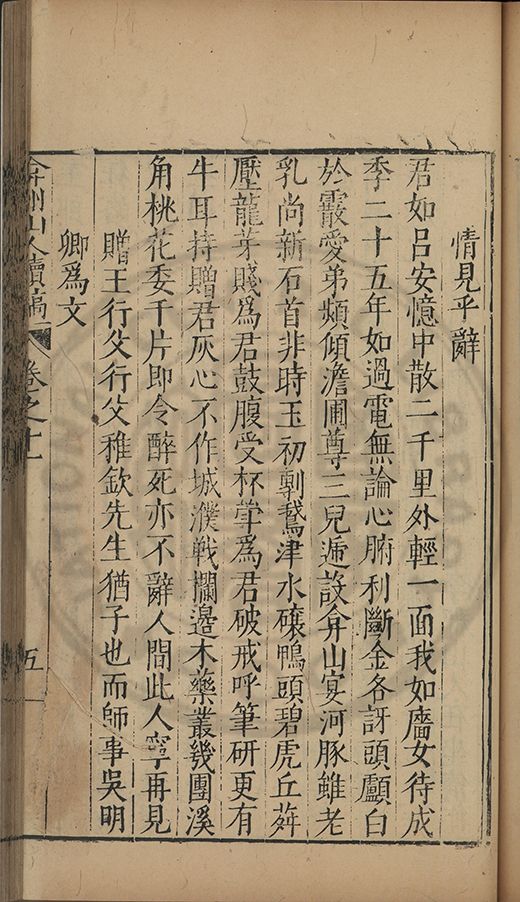 情見乎辭
君如呂安憶中散二千里外輕一面我如廧女待成
季二十五年如過電無論心腑利斷金各訝頭顱白
於霰愛弟頻傾澹圃尊三兒遞設弇山宴河豚雖老
乳尚新石首非時玉初剸鵞津水鴨頭碧虎丘荈
壓龍芽賤爲君鼓腹受杯爲君破戒呼筆研更有
牛耳持贈君灰心不作城濮戰攔邊木藥叢幾團溪
角桃花委千片即令醉死亦不辭人間此人寧再見
贈王行父行父稚欽先生猶子也而師事吳明
卿爲文
弇州山人續稿 卷之十一 五